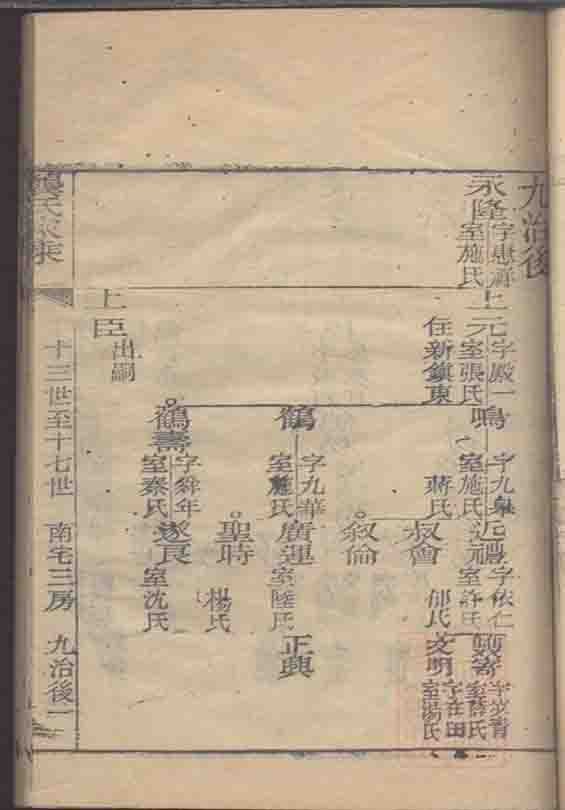 九治後
永隆
字惠
室施氏
上元
字殿一
室張氏
住新鎮東
鳴
字九皋
室施氏
蔣氏
近禮
字依仁
室許氏
郁氏
室薛氏
文明
字在田
室湯氏
叔會
叙倫
鶴
字九華
室施氏
廣運
室陸氏
正興
聖時
楊氏
鶴壽
字舜年
室秦氏
遂良
室沈氏
上臣
出嗣
氏家乘
十三世至十七世
南宅三房
九治後一